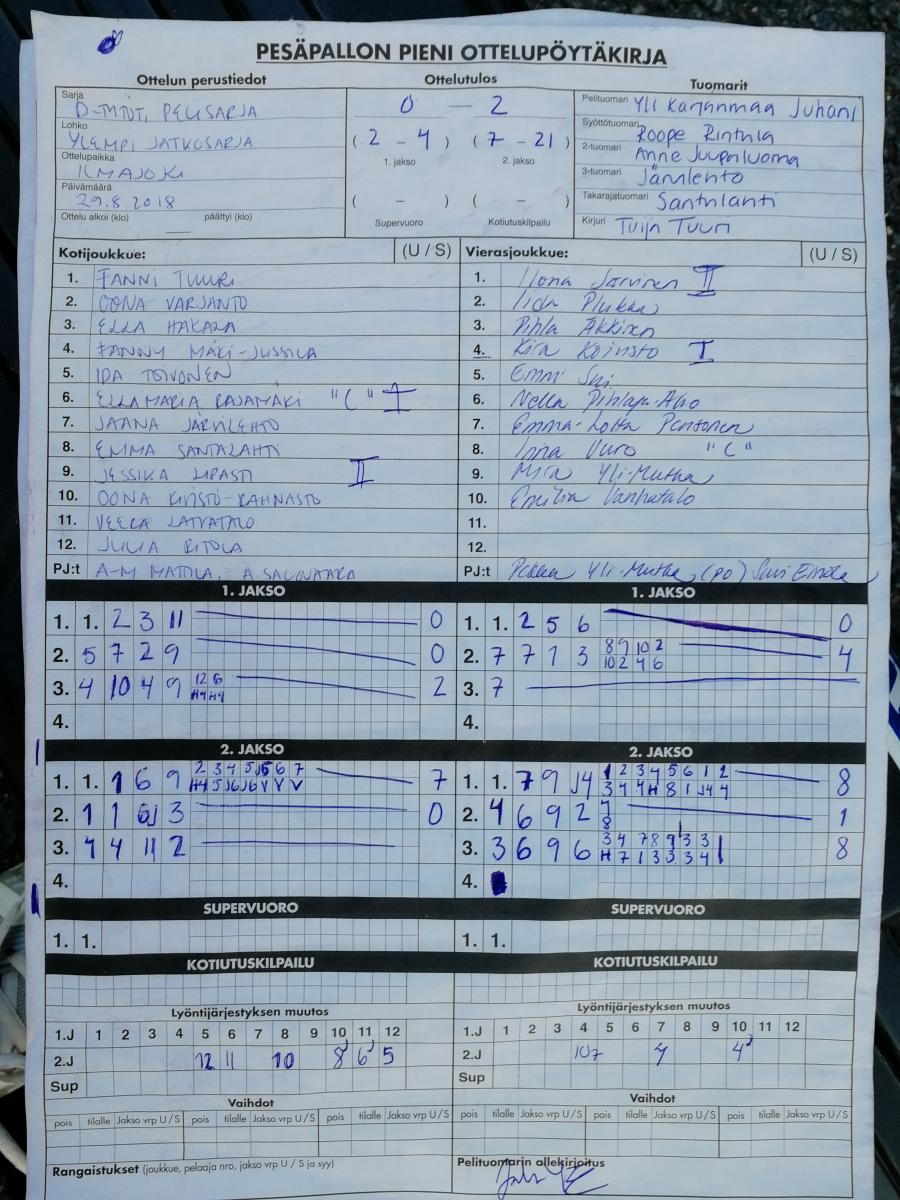 PESÄPALLON PIENI OTTELUPÖYTÄKIRJA
Ottelun perustiedot
Sarja
D-TYTÖT, PELISARJA
Lohko
YLEMPI JATKOSARJA
Ottelupaikka
ILMAJOKI
Päivämäärä
29.8.2018
Ottelu alkoi (klo) päättyi (klo)
Ottelutulos
0 – 2
( 2 – 4 ) ( 7 – 21 )
1. jakso 2. jakso
( – ) ( – )
Supervuoro Kotiutuskilpailu
Tuomarit
Pelituomari Yli Karjanmaa Juhani
Syöttötuomari Roope Rintala
2-tuomari Anne Juupaluoma
3-tuomari Järvilehto
Takarajatuomari Santalahti
Kirjuri Tuija Tuuri
Kotijoukkue: (U / S)
1. FANNI TUURI
2. OONA VARJANTO
3. ELLA HAKALA
4. FANNY MÄKI-JUSSILA
5. IDA TOIVONEN
6. ELLAMARIA RAJAMÄKI "C" I
7. JAANA JÄRVILEHTO
8. EMMA SANTALAHTI
9. JESSIKA LIPASTI II
10. OONA KIVISTÖ-RAHNASTO
11. VEERA LATVATALO
12. JULIA RITOLA
PJ:t A-M MATTILA, A. SALOVAARA
Vierasjoukkue: (U / S)
1. Ilona Järvinen II
2. Iida Plukka
3. Pihla Äkkinen
4. Kira Koivisto I
5. Emmi Sui
6. Nella Pihlaja-Aho
7. Emma-Lotta Pentonen
8. Inna Vuro "C"
9. Mira Yli-Mutka
10. Emilia Vanhatalo
11.
12.
PJ:t Pekka Yli-Mutka, (PO)
1. JAKSO
1. 1. 2 3 11 0
2. 5 7 2 9 0
3. 4 10 4 9 12 6 2
H4 H4
4.
1. JAKSO
1. 1. 2 5 6 0
2. 7 7 1 3 8 9 10 2 4
10 2 4 6
3. 7
4.
2. JAKSO
1. 1. 1 6 9 2 3 4 5 6 7 7
2. 1 1 3 0
3. 4 4 11 2
4.
2. JAKSO
1. 1. 7 9 J4 1 2 3 4 5 6 1 2 8
3 4 4 H 8 1 J4 4
2. 4 6 9 2 1
8
3. 3 6 9 6 3 4 7 8 9 3 3 8
H 7 1 3 3 3 4
4.
SUPERVUORO
1. 1.
SUPERVUORO
1. 1.
KOTIUTUSKILPAILU
KOTIUTUSKILPAILU
Lyöntijärjestyksen muutos
1.J 1 2 3 4 5 6 7 8 9 10 11 12
2.J 12 11 10 8 6 5
Sup
Lyöntijärjestyksen muutos
1.J 1 2 3 4 5 6 7 8 9 10 11 12
2.J 107 4 4
Sup
Vaihdot
pois tilalle Jakso vrp U / S pois tilalle Jakso vrp U / S pois tilalle Jakso vrp U / S
Vaihdot
pois tilalle Jakso vrp U / S pois tilalle Jakso vrp U / S pois tilalle Jakso vrp U / S
Rangaistukset (joukkue, pelaaja nro, jakso vrp U / S ja syy)
Pelituomarin allekirjoitus